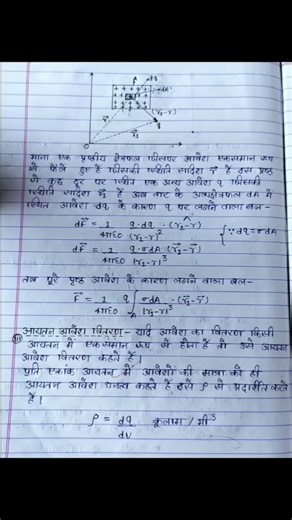 A
dq'
dA'
(r₂-r)
q
r
r₂
O
माना एक पृष्ठीय क्षेत्रफल जिसपर आवेश एकसमान रूप
से फैले हुए हैं जिसकी स्थिति सदिश r है इस पृष्ठ
से कुछ दूर पर स्थित एक अन्य आवेश q जिसकी
स्थिति सदिश r₂ है अब बाट के अल्पक्षेत्रफल dA में
स्थित आवेश dq के कारण q पर लगने वाला बल-
dF = 1/4πε0 q·dq/(r₂-r)² · (r₂-r) {∵ dq = σdA
dF = 1/4πε0 q·σdA·(r₂-r)/|r₂-r|³
तब पूरे पृष्ठ आवेश के कारण लगने वाला बल-
F = 1/4πε0 q∫σdA·(r₂-r)/|r₂-r|³
(iii) आयतन आवेश वितरण- यदि आवेश का वितरण किसी
आयतन में एकसमान रूप से होता है तो उसे आयतन
आवेश वितरण कहते हैं।
प्रति एकांक आयतन में आवेशों की मात्रा को ही
आयतन आवेश घनत्व कहते हैं इसे ρ से प्रदर्शित करते
हैं।
ρ = dq/dv कूलाम/मी³